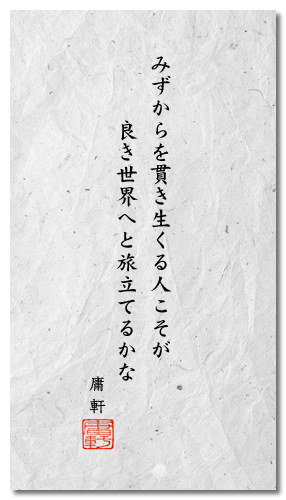 みずからを貫き生くる人こそが
良き世界へと旅立てるかな
庸軒
庸軒